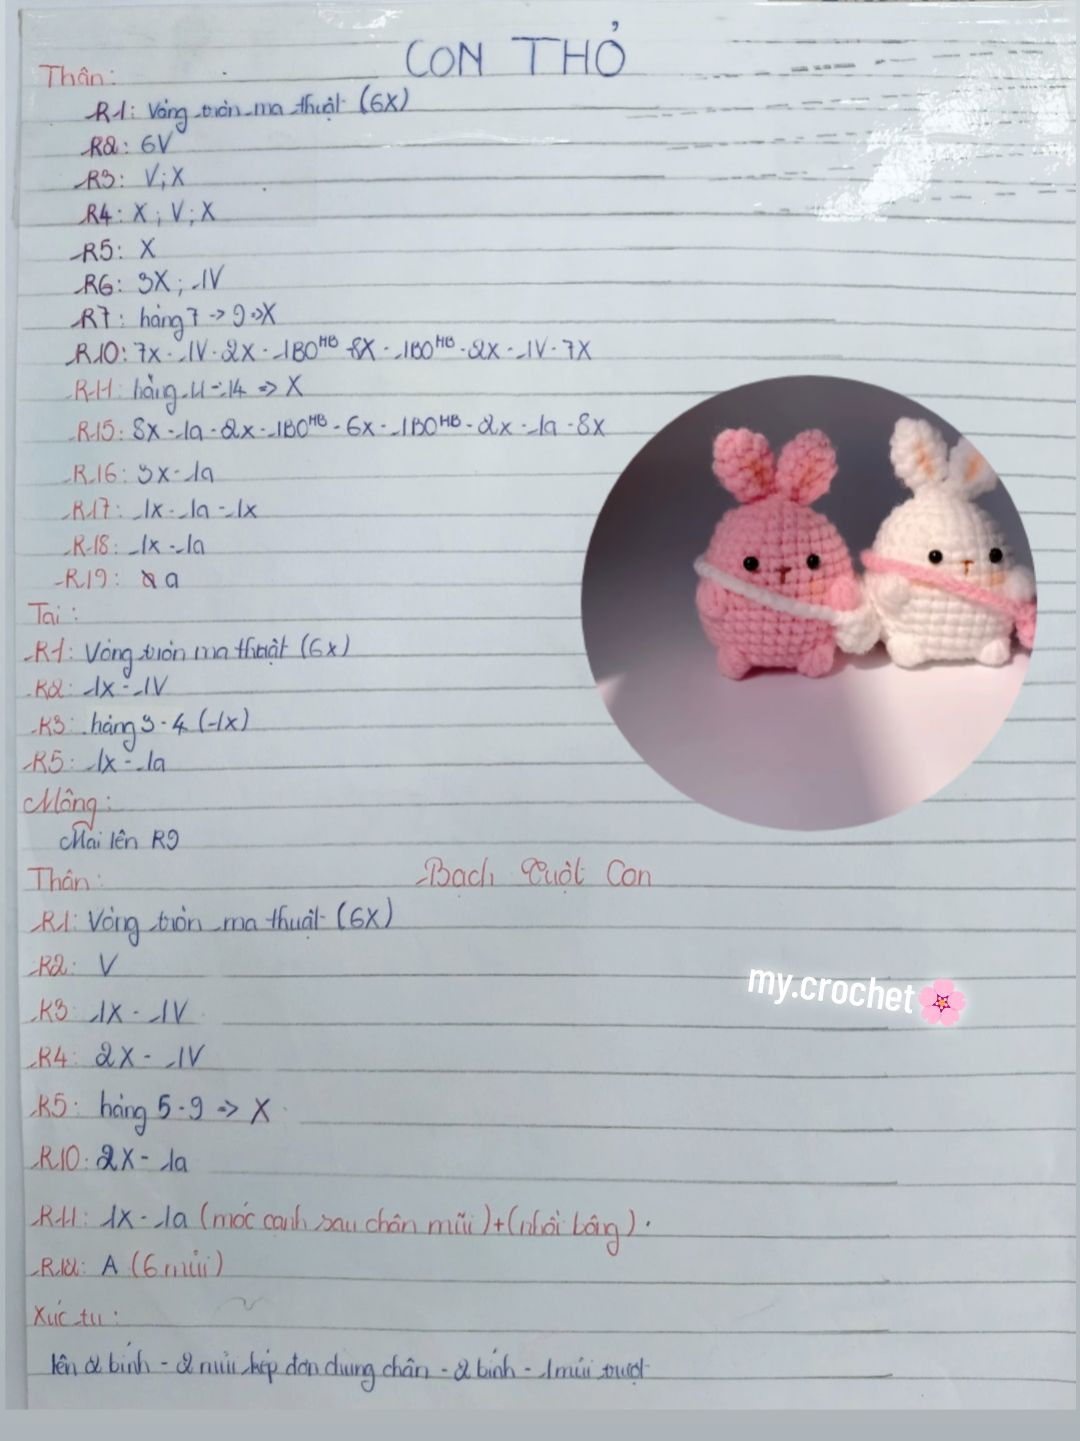 CON THỎ
Thân:
R1: Vòng tròn ma thuật (6X)
R2: 6V
R3: V; X
R4: X; V; X
R5: X
R6: 3X; 1V
R7: hàng 7 -> 9 => X
R10: 7X - 1V - 2X - 1BO^HB - 8X - 1BO^HB - 2X - 1V - 7X
R11: hàng 11 -> 14 => X
R15: 8X - 1a - 2x - 1BO^HB - 6x - 1BO^HB - 2x - 1a - 8x
R16: 3x - 1a
R17: 1x - 1a - 1x
R18: 1x - 1a
R19: a
Tai:
R1: Vòng tròn ma thuật (6x)
R2: 1x - 1V
R3: hàng 3 - 4 (1x)
R5: 1x - 1a
Mông:
lên R9
Bạch Tuột Con
Thân:
R1: Vòng tròn ma thuật (6X)
R2: V
R3: 1X - 1V
R4: 2X - 1V
R5: hàng 5 - 9 => X
R10: 2X - 1a
R11: 1X - 1a (móc cạnh sau chân mũi) + (nhồi bông).
R12: A (6 mũi)
Xúc tu:
lên 2 bính - 2 mũi kép đơn chung chân - 2 bính - 1 mũi trượt
my.crochet🌸